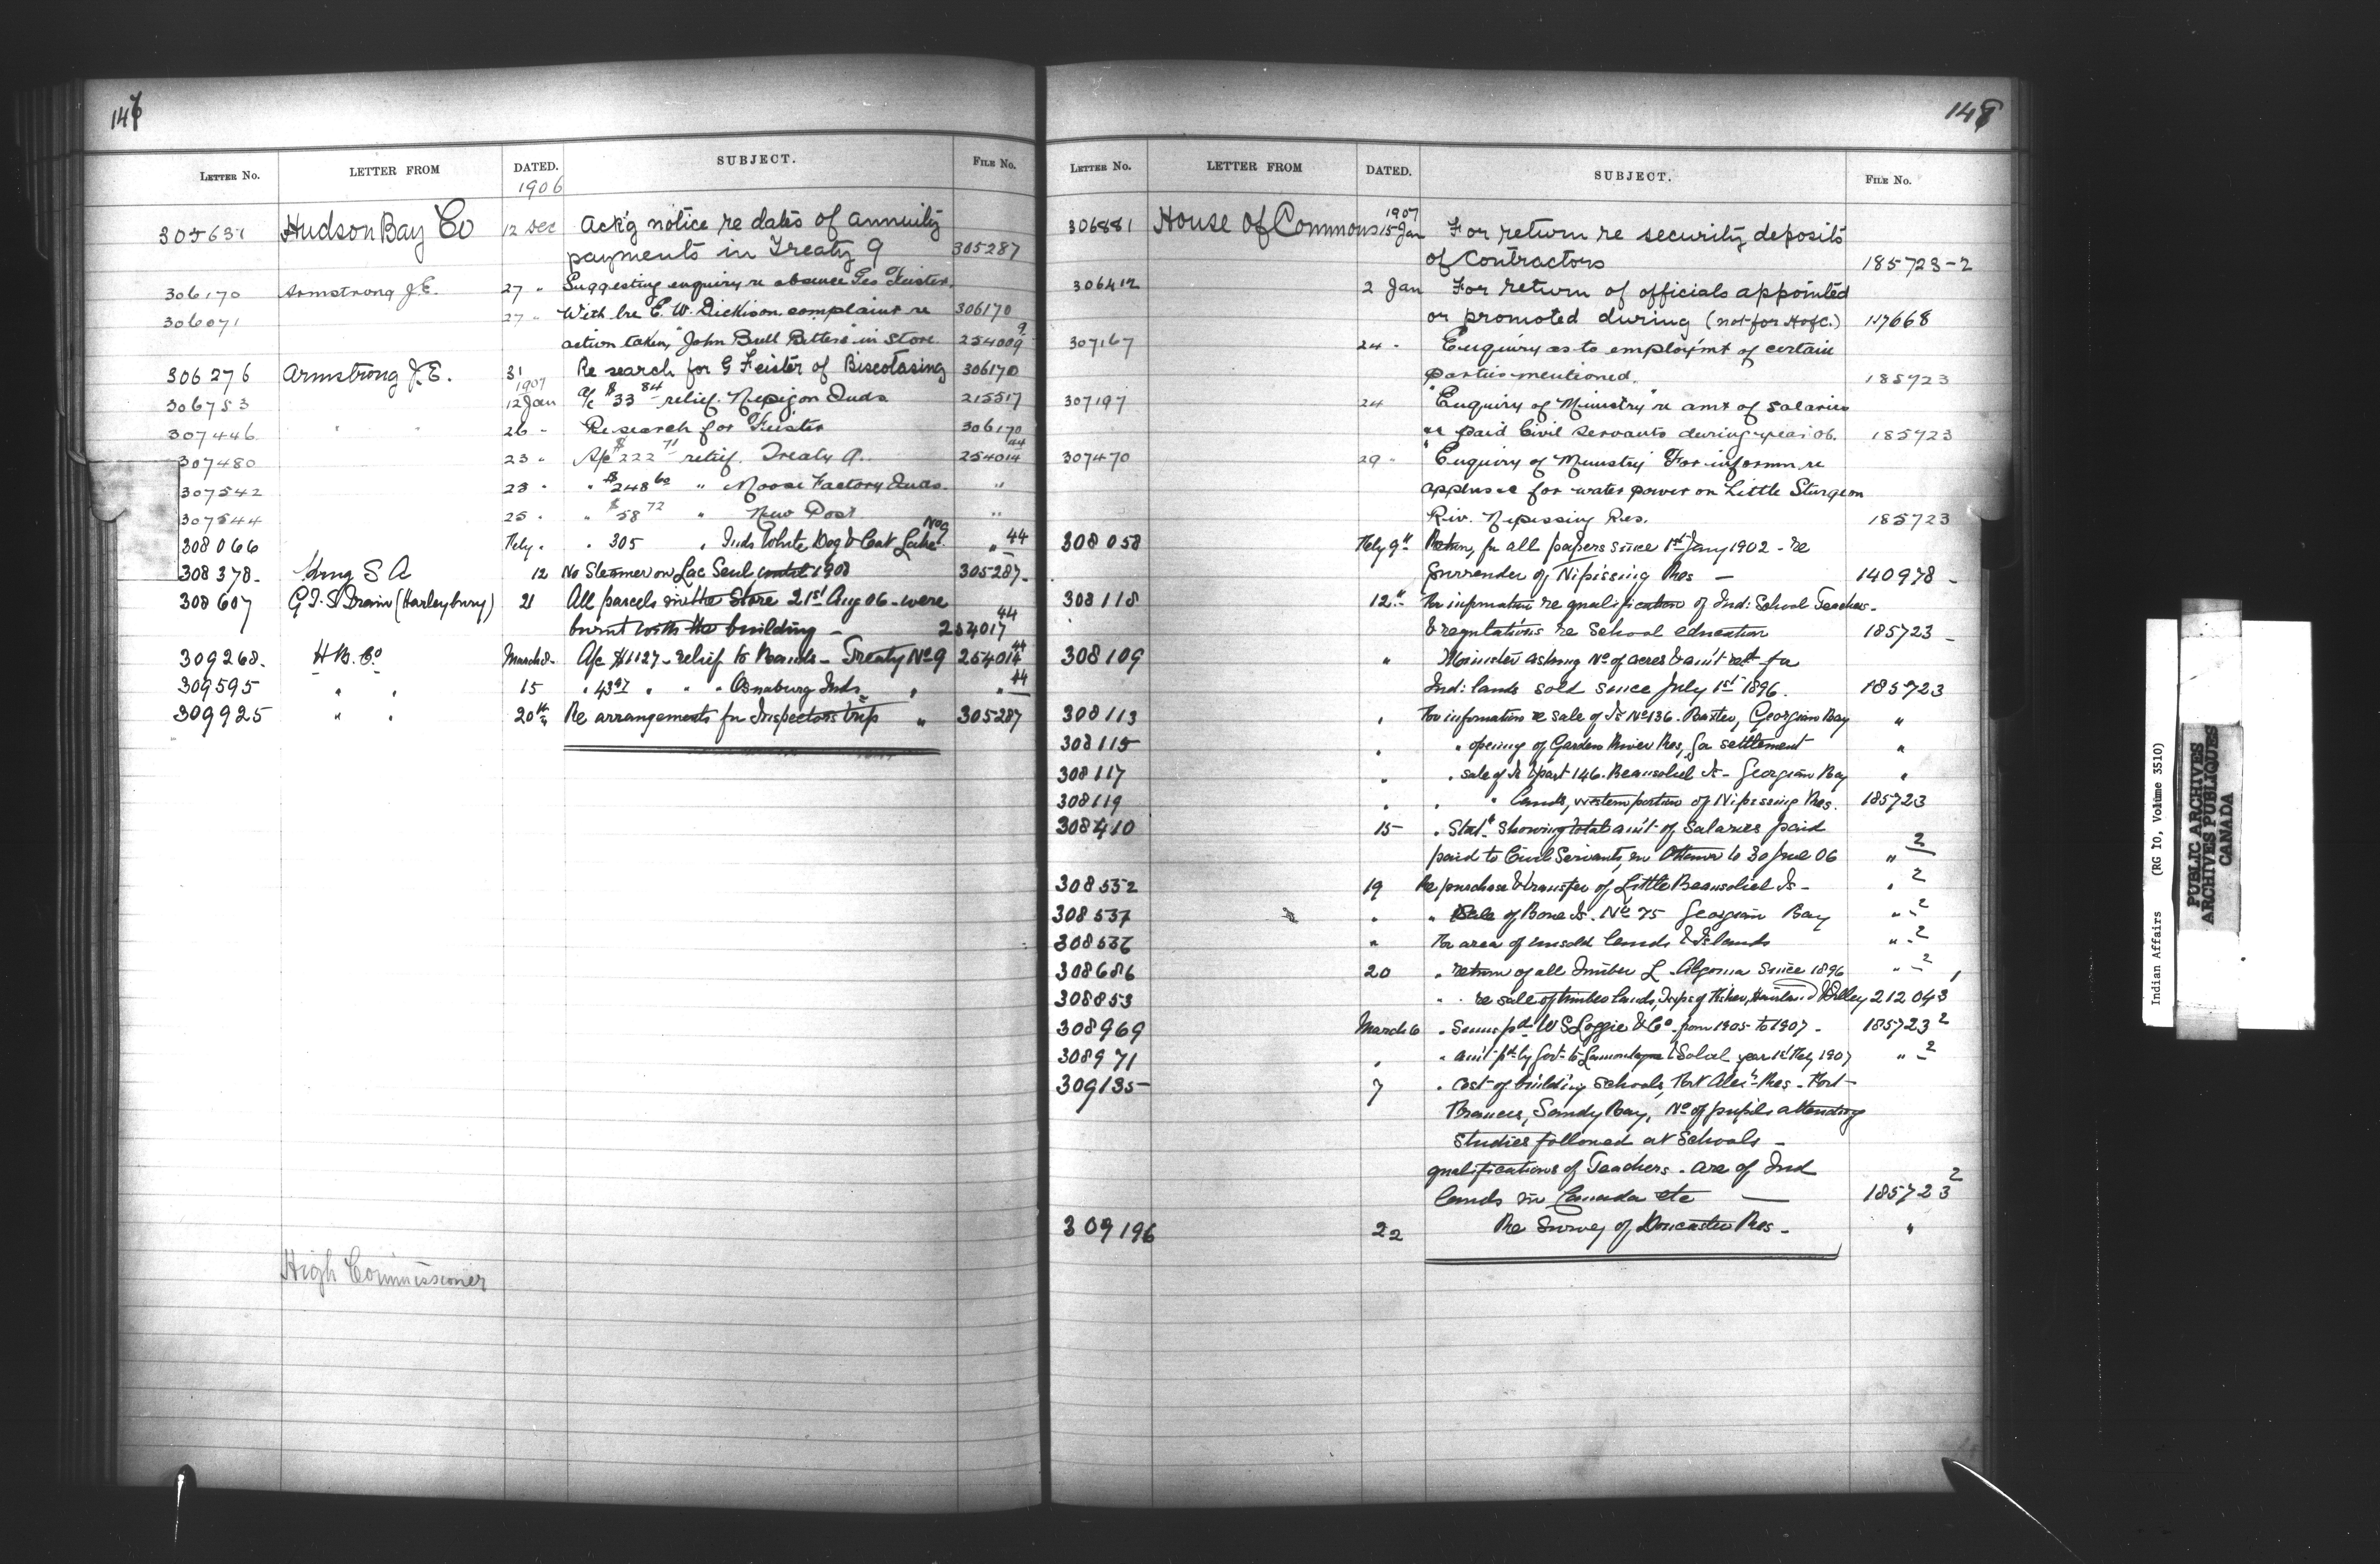 147
LETTER NO. LETTER FROM DATED. SUBJECT. FILE NO.
1906
305631 Hudson Bay Co 12 Dec Ack'g notice re dates of annuity
payments in Treaty 9 305287
306170 Armstrong J.E. 27 " Suggesting enquiry re absence Geo Feister.
306071 27 " With lre E. W. Dickison complaint re 306170
action taken, "John Bull Bitters" in store. 254009 9
306276 Armstrong J.E. 31 Re search for G Feister of Biscotasing 306170
1907
306753 12 Jan a/c $33 84 relief. Nepigon Inds 215517
307446 " " 26 " Re search for Feister 306170
307480 23 " A/c $222 71 relief. Treaty 9. 254014 44
307542 23 " " $248 60 " Moose Factory Inds. "
307544 25 " " $58 72 " New Post "
308066 Feby " " 305 " Inds White Dog & Cat Lake No 9 " 44
308378 - King S A 12 No Steamer on Lac Seul until 1908 305287 -
308607 G.T. S Drain (Harleybury) 21 All parcels in the Store 21st Aug 06 - were
burnt with the building - 254017 44
309268. H.B. Co March 8 - A/c $1127 - relief to Bands - Treaty No 9 254014 44
309595 " " 15 " 43 97 " " " Osnaburg Inds " " 44
309925 " " 20th Re arrangements for Inspectors trip " 305287
High Commissioner
148
LETTER NO. LETTER FROM DATED. SUBJECT. FILE NO.
1907
306881 House of Commons 15 Jan For return re security deposits
of Contractors 185723-2
306412 2 Jan For return of officials appointed
or promoted during (not for HofC.) 117668
307167 24 " Enquiry as to employm't of certain
parties mentioned. 185723
307197 24 "Enquiry of Ministry" re amt of salaries
paid Civil Servants during year 06. 185723
307470 29 " "Enquiry of Ministry" For informn re
for water power on Little Sturgeon
Riv. Nipissing Res. 185723
308058 Feby 9th Return, for all papers since 1st Jany 1902 - re
surrender of Nipissing Res - 140978 -
308118 12th For information re qualification of Ind: School Teachers -
& regulations re School education 185723 -
308109 " Minister asking No of acres & am't for
Ind: lands sold since July 1st 1896. 185723
308113 " For information re sale of Is No 136. Baxter, Georgian Bay "
308115 " " opening of Garden River Res, for settlement "
308117 " " sale of Is part 146. Beausoliel Is - Georgian Bay "
308119 " " " lands, western portion of Nipissing Res. 185723
308410 15 " Stat't showing total am't of salaries paid
paid to Civil Servants, in Ottawa to 30 June 06 " 2
308532 19 Re purchase & transfer of Little Beausoliel Is - " 2
308537 " " Sale of Bone Is. No 75 Georgian Bay " - 2
308536 " For area of unsold lands & Islands " - 2
308686 20 " return of all timber L. Algoma since 1896 " - 2
308853 " " re sale of timber lands, Twps of Fisher, Haviland & Tilley 212043
308969 March 6 " Sums pd W S Loggie & Co from 1905 to 1907 - 185723 2
308971 " " am't pd by Govt to & Soleil year 1st Feby 1907 " - 2
309135 7 " cost of building schools, Fort Alex'r Res - Fort
Frances, Sandy Bay, No of pupils attending
studies followed at Schools -
qualifications of Teachers - are of Ind
lands in Canada etc - 185723 2
309196 22 Re Survey of Doncaster Res - "
Indian Affairs (RG 10, Volume 3510)
PUBLIC ARCHIVES
ARCHIVES PUBLIQUES
CANADA